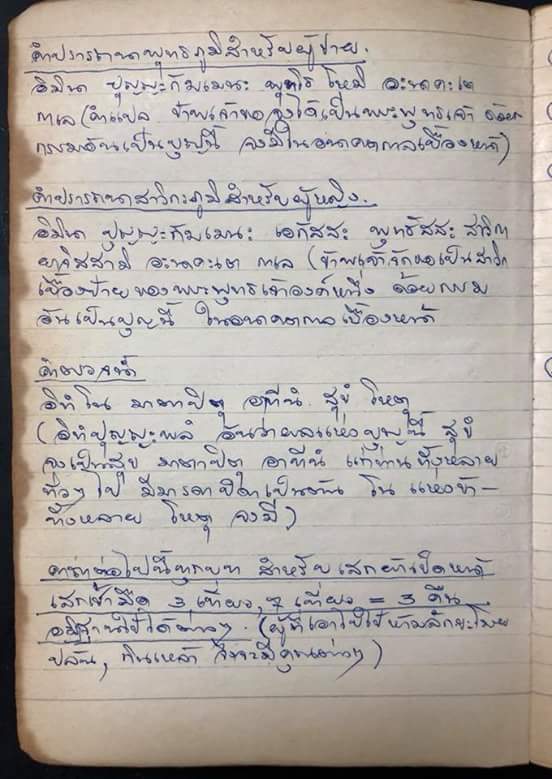 คำปรารถนาพุทธภูมิสำหรับผู้ชาย.
อิมินา ปุญญะกัมเมนะ พุทโธ โหมิ อะนาคะเต
กาเล (คำแปล ข้าพเจ้าขอจงได้เป็นพระพุทธเจ้า ด้วย
กรรมอันเป็นบุญนี้ จงมีในอนาคตกาลเบื้องหน้า)
คำปรารถนาสาวิกะภูมิสำหรับผู้หญิง.
อิมินา ปุญญะกัมเมนะ เอกัสสะ พุทธัสสะ สาวิกา
ภะวิสสามิ อะนาคะเต กาเล (ข้าพเจ้าจักขอเป็นสาวิกา
เบื้องซ้าย ของพระพุทธเจ้าองค์หนึ่ง ด้วยกรรม
อันเป็นบุญนี้ ในอนาคตกาลเบื้องหน้า
คำกรวดน้ำ
อิทํ โน มาตาปิตุ อาทีนํ สุขํ โหตุ
(อิทํปุญญะพลํ อันว่าผลแห่งบุญนี้ สุขํ
จงเป็นสุข มาตาปิตุ อาทีนํ แก่ท่านทั้งหลาย
ทั่วๆ ไป มีมารดาบิดาเป็นต้น โน แห่งข้า-
ทั้งหลาย โหตุ จงมี)
คาถาต่อไปนี้ทุกบท สำหรับเสกผ้าเช็ดหน้า
เสกข้ามือ 3 เที่ยว, 7 เที่ยว = 3 คืน
อธิฐานใช้ได้ต่างๆ. (ผู้ที่เอาไปใช้ห้ามลักขะโมย
ปล้น, กินเหล้า จึงจะมีคุณต่างๆ)